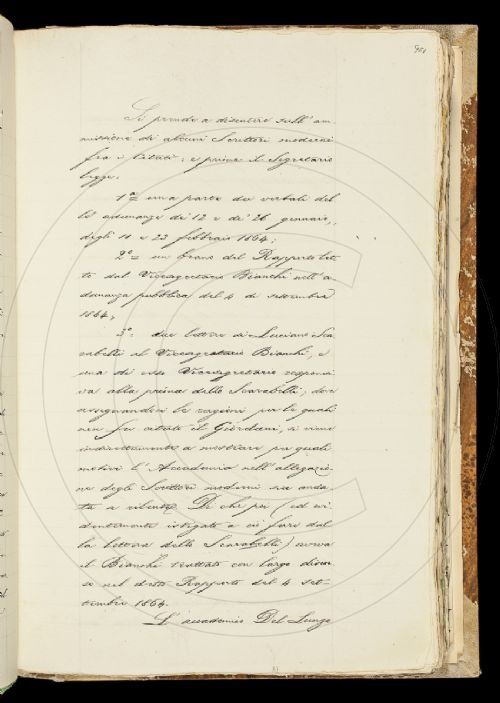 Si prende a discutere sull'am
missione di alcuni Scrittori moderni
fra i Citati: e prima il Segretario
legge.
1º una parte dei verbali del
le adunanze de' 12 e de' 26 gennaio,
degli 11 e 23 febbraio 1864;
2º un brano del Rapporto let
to dal Vicesegretario Bianchi nell'a
dunanza pubblica del 4 di settembre
1864;
3º due lettere di Luciano Sca
rabelli al Vicesegretario Bianchi, e
una di esso Vicesegretario responsi
va alla prima dello Scarabelli; dove
assegnandosi le ragioni per le quali
non fu citato il Giordani, si viene
indirettamente a mostrare per quali
motivi l'Accademia nell'allegazio
ne degli Scrittori moderni sia anda
ta a rilento. Di che poi (ed evi
dentemente istigato a ciò fare dal
la lettera dello Scarabelli) aveva
il Bianchi trattato con largo discor
so nel detto Rapporto del 4 set-
tembre 1864.
L'accademico Del Lungo